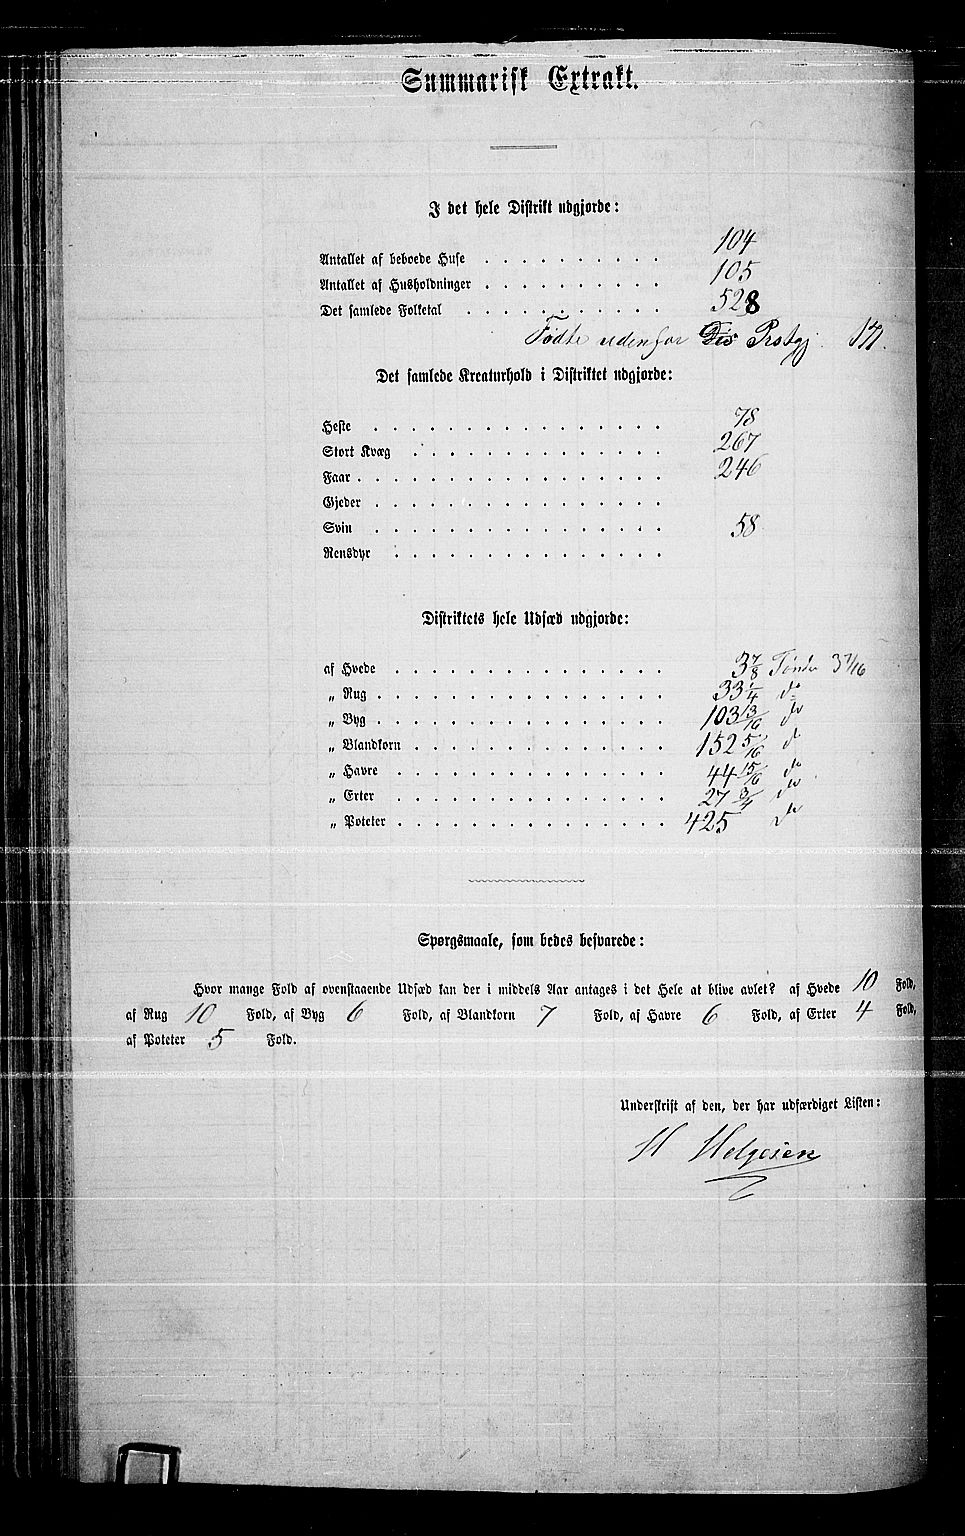 Summarisk Extrakt.
I det hele Distrikt udgjorde:
Antallet af beboede Huse . . . . . . . . . . 104
Antallet af Husholdninger . . . . . . . . . . 105
Det samlede Folketal . . . . . . . . . . . 528
Fødte udenfor Prstgj.
Det samlede Kreaturhold i Distriktet udgjorde:
Heste . . . . . . . . . . . . . . . . 78
Stort Kvæg . . . . . . . . . . . . . . 267
Faar . . . . . . . . . . . . . . . . . 246
Gjeder . . . . . . . . . . . . . . . .
Svin . . . . . . . . . . . . . . . . 58
Rensdyr . . . . . . . . . . . . . . .
Distriktets hele Udsæd udgjorde:
af Hvede . . . . . . . . . . . . . . . 3 7/8 Tønder 3 7/16
„ Rug . . . . . . . . . . . . . . . . 33 1/4 do
„ Byg . . . . . . . . . . . . . . . . 103 13/16 do
„ Blandkorn . . . . . . . . . . . . . . 152 5/16 do
„ Havre . . . . . . . . . . . . . . . 44 15/16 do
„ Erter . . . . . . . . . . . . . . . 27 3/4 do
„ Poteter . . . . . . . . . . . . . . . 425 do
Spørgsmaale, som bedes besvarede:
Hvor mange Fold af ovenstaaende Udsæd kan der i middels Aar antages i det Hele at blive avlet? af Hvede 10 Fold,
af Rug 10 Fold, af Byg 6 Fold, af Blandkorn 7 Fold, af Havre 6 Fold, af Erter 4 Fold,
af Poteter 5 Fold.
Underskrift af den, der har udfærdiget Listen:
H Helgesen